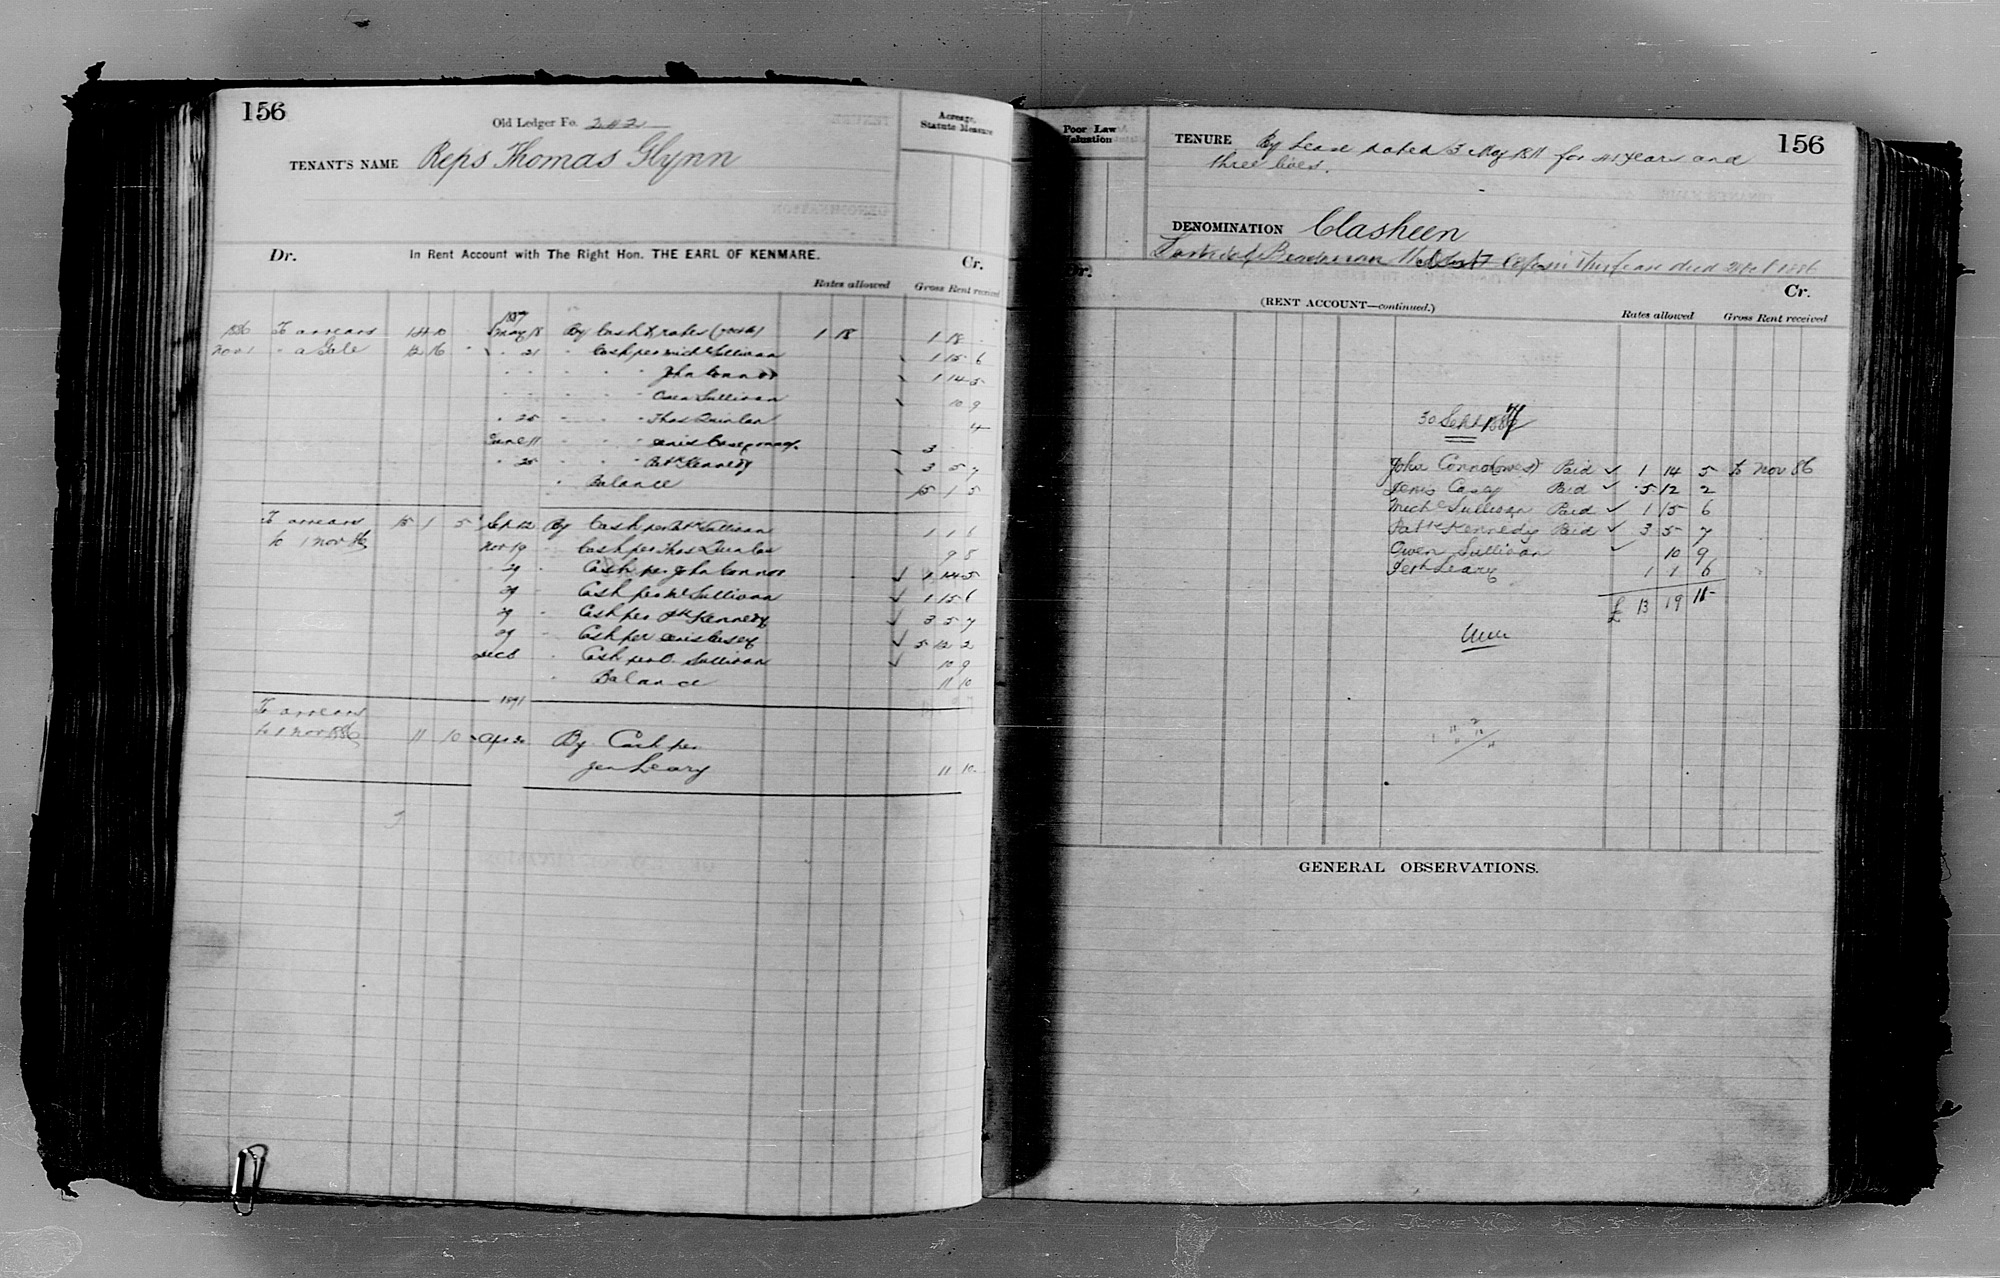 156
Old Ledger Fo. 242
TENANT'S NAME Reps Thomas Glynn
Acreage, Statute Measure
Dr. In Rent Account with The Right Hon. THE EARL OF KENMARE. Cr.
Rates allowed Gross Rent received
1887
1886 To arrears 14 10 May 18 By Cash & rates 1 18 1 18
Nov 1 " a Gale 12 16 " 21 " Cash per Mich Sullivan 1 15 6
" " " " John Connor 1 14 5
" " " " Owen Sullivan 10 9
" 25 " " " Thos Quinlan 4
June 11 " " " Denis Casey 3
" 25 " " " Patk Kennedy 3 5 7
" Balance 15 1 5
To arrears 15 1 5 Sep 12 By Cash per Sullivan 1 1 6
to 1 Nov 86 Nov 19 " Cash per Thos Quinlan 9 8
29 " Cash per John Connor ✓ 1 14 5
29 " Cash per Ml Sullivan ✓ 1 15 6
29 " Cash per Pk Kennedy ✓ 3 5 7
29 " Cash per Denis Casey ✓ 5 12 2
Dec 6 " Cash per O. Sullivan ✓ 10 9
" Balance 11 10
1891
To arrears
to 1 Nov 1886 11 10 Apr 30 By Cash per
Jer Leary 11 10
Poor Law Valuation
TENURE By Lease dated 3 May 1811 for 41 years and
three lives.
156
DENOMINATION Clasheen
died 1886
Dr. Cr.
(RENT ACCOUNT—continued.)
Rates allowed Gross Rent received
30 Sept 1887
John Connor (west) Paid ✓ 1 14 5 to Nov 86
Denis Casey Paid ✓ 5 12 2
Michl Sullivan Paid ✓ 1 15 6
Pattk Kennedy Paid ✓ 3 5 7
Owen Sullivan ✓ 10 9
Jerh Leary 1 1 6
£ 13 19 11
GENERAL OBSERVATIONS.